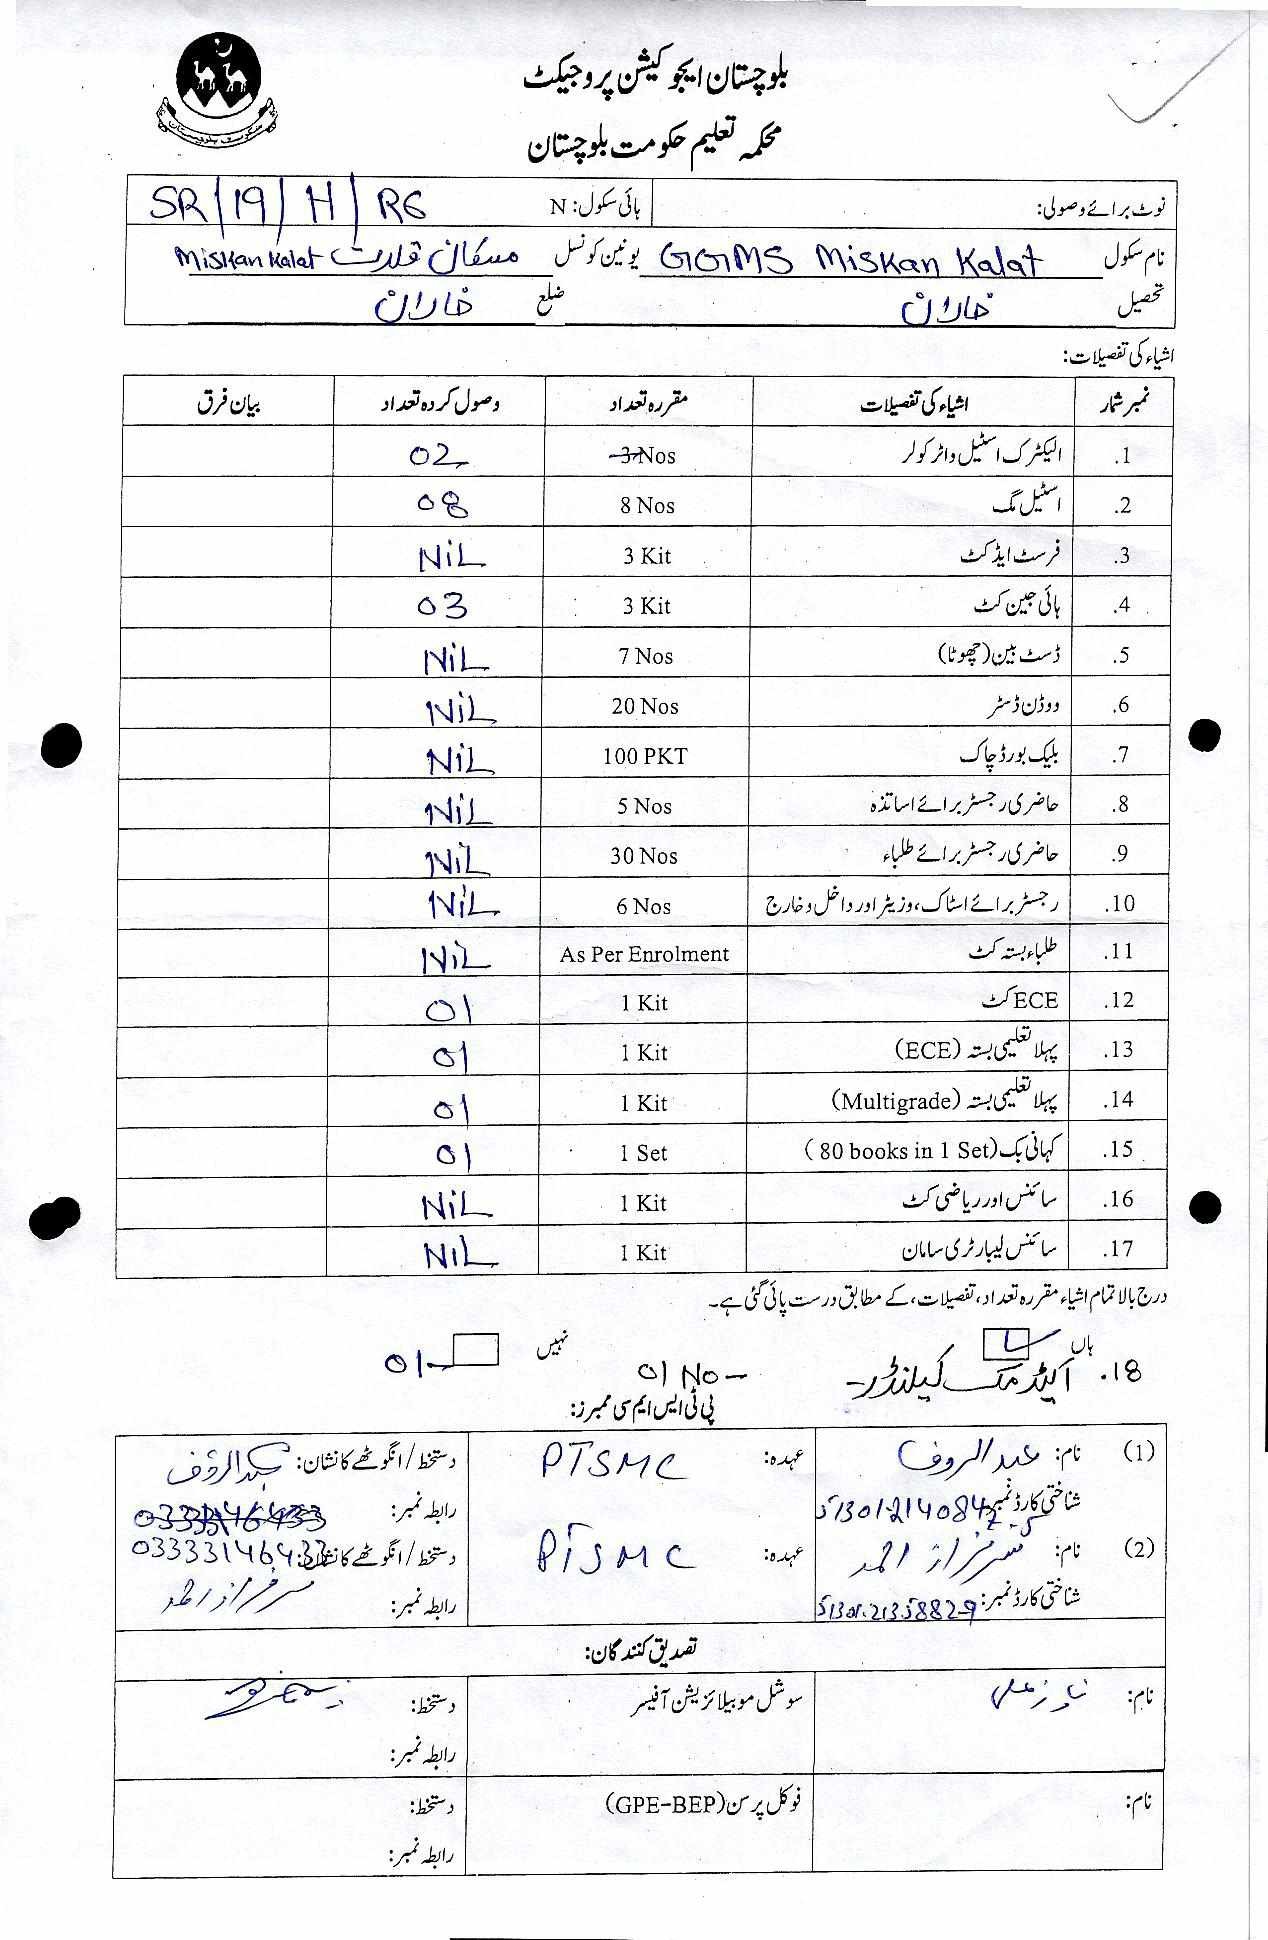 بلوچستان ایجوکیشن پروجیکٹ
محکمہ تعلیم حکومت بلوچستان
نوٹ برائے وصولی: ہائی سکول: N SR/19/H/RG
نام سکول GGMS Miskan Kalat یونین کونسل مسکان قلات Miskan Kalat
تحصیل خاران ضلع خاران
اشیاء کی تفصیلات:
نمبر شمار اشیاء کی تفصیلات مقررہ تعداد وصول کردہ تعداد بیان فرق
1. الیکٹرک اسٹیل واٹر کولر 3 Nos 02
2. اسٹیل مگ 8 Nos 08
3. فرسٹ ایڈ کٹ 3 Kit NiL
4. ہائی جین کٹ 3 Kit 03
5. ڈسٹ بین (چھوٹا) 7 Nos NiL
6. ووڈن ڈسٹر 20 Nos NiL
7. بلیک بورڈ چاک 100 PKT NiL
8. حاضری رجسٹر برائے اساتذہ 5 Nos NiL
9. حاضری رجسٹر برائے طلباء 30 Nos NiL
10. رجسٹر برائے اسٹاک، وزیٹر اور داخل و خارج 6 Nos NiL
11. طلباء بستہ کٹ As Per Enrolment NiL
12. ECE کٹ 1 Kit 01
13. پہلا تعلیمی بستہ (ECE) 1 Kit 01
14. پہلا تعلیمی بستہ (Multigrade) 1 Kit 01
15. کہانی بک (80 books in 1 Set) 1 Set 01
16. سائنس اور ریاضی کٹ 1 Kit NiL
17. سائنس لیبارٹری سامان 1 Kit NiL
درج بالا تمام اشیاء مقررہ تعداد، تفصیلات، کے مطابق درست پائی گئی ہے۔
ہاں نہیں
18. اکیڈمک کیلنڈر- 01 No- 01
پی ٹی ایس ایم سی ممبرز:
(1) نام: عبدالروف عہدہ: PTSMC دستخط / انگوٹھے کا نشان: عبدالروف
شناختی کارڈ نمبر: رابطہ نمبر: 03333146433
(2) نام: سرفراز احمد عہدہ: PTSMC دستخط / انگوٹھے کا نشان: 03333146433
شناختی کارڈ نمبر: 51301.21358829 رابطہ نمبر: سرفراز احمد
تصدیق کنندگان:
نام: سوشل موبیلائزیشن آفیسر دستخط:
رابطہ نمبر:
نام: فوکل پرسن (GPE-BEP) دستخط:
رابطہ نمبر: